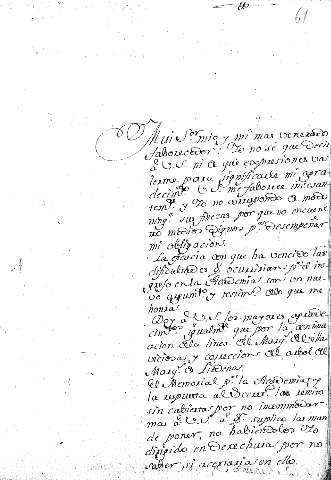 61
Mui Sor. mio, y mi mas venerado
faborecedor: Yo no sé que decir
à V.S. ni de que expresiones va-
lerme para significarle mi agra-
decimto. V.S. me faborece incesan-
temte. y Yo no correspondo de modo
ningo. sus finezas porque no encuen-
tro medios dignos pa. desempeñar
mi obligacion.
La gracia con que ha vencido las
dificultades q. ocurririan pa. el in-
greso en la Academia son un nue-
vo
honra.
Doy à V.S. los mayores agrade-
cimtos. igualmte. que por la continu-
acion de la linea del Marqs. de Villa
y correccion del arbol del
Marqs. de
El Memorial pa. la Academia, y
la repuesta al Secreto. las remito
sin cubierta por no incommodar-
mas à V.S. à q. suplico las man-
de poner, no habiendolos Yo
dirigido en derechura por no
saber si acertaria en ello.